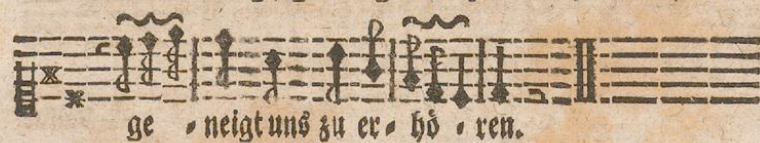 ge - neigt uns zu er- hö - ren.